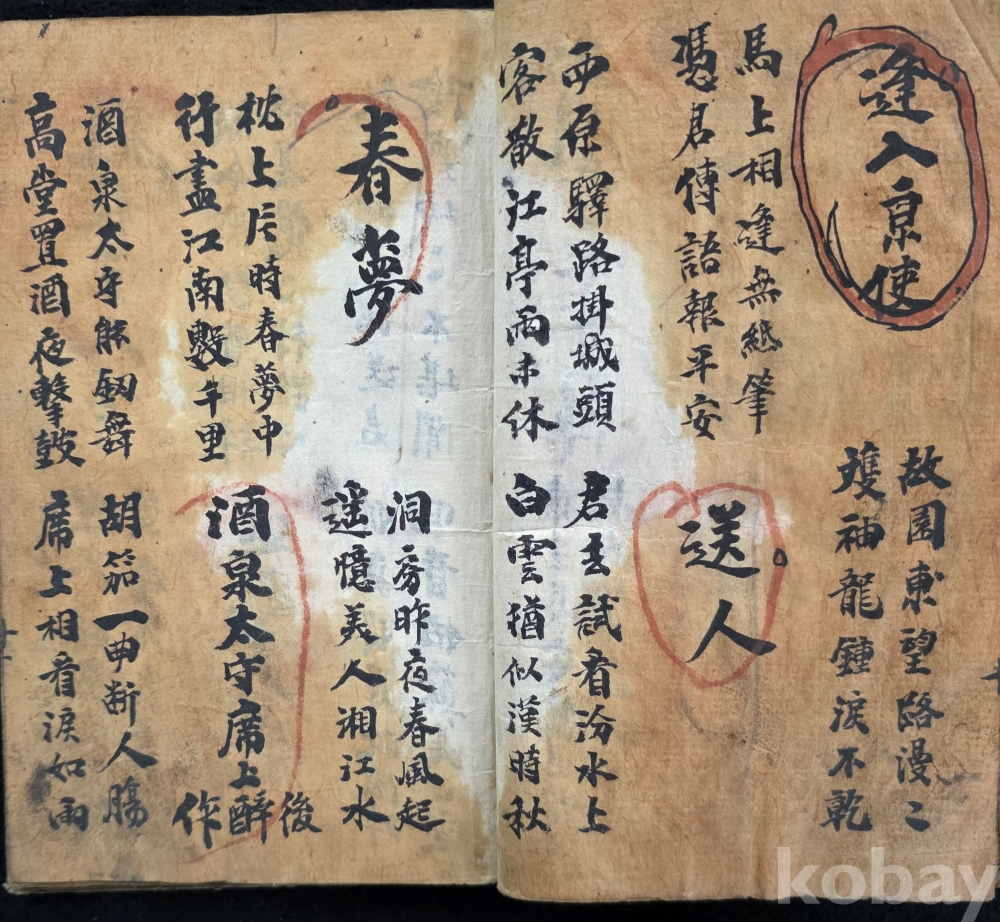 逢入京使
故園東望路漫〻
雙袖龍鍾淚不乾
馬上相逢無紙筆
憑君傳語報平安
送人
西原驛路掛城頭
客散江亭雨未休
君去試看汾水上
白雲猶似漢時秋
春夢
洞房昨夜春風起
遥憶美人湘江水
枕上片時春夢中
行盡江南數千里
酒泉太守席上醉後作
酒泉太守能劒舞
高堂置酒夜擊鼓
胡笳一曲断人腸
席上相看淚如雨
kobay